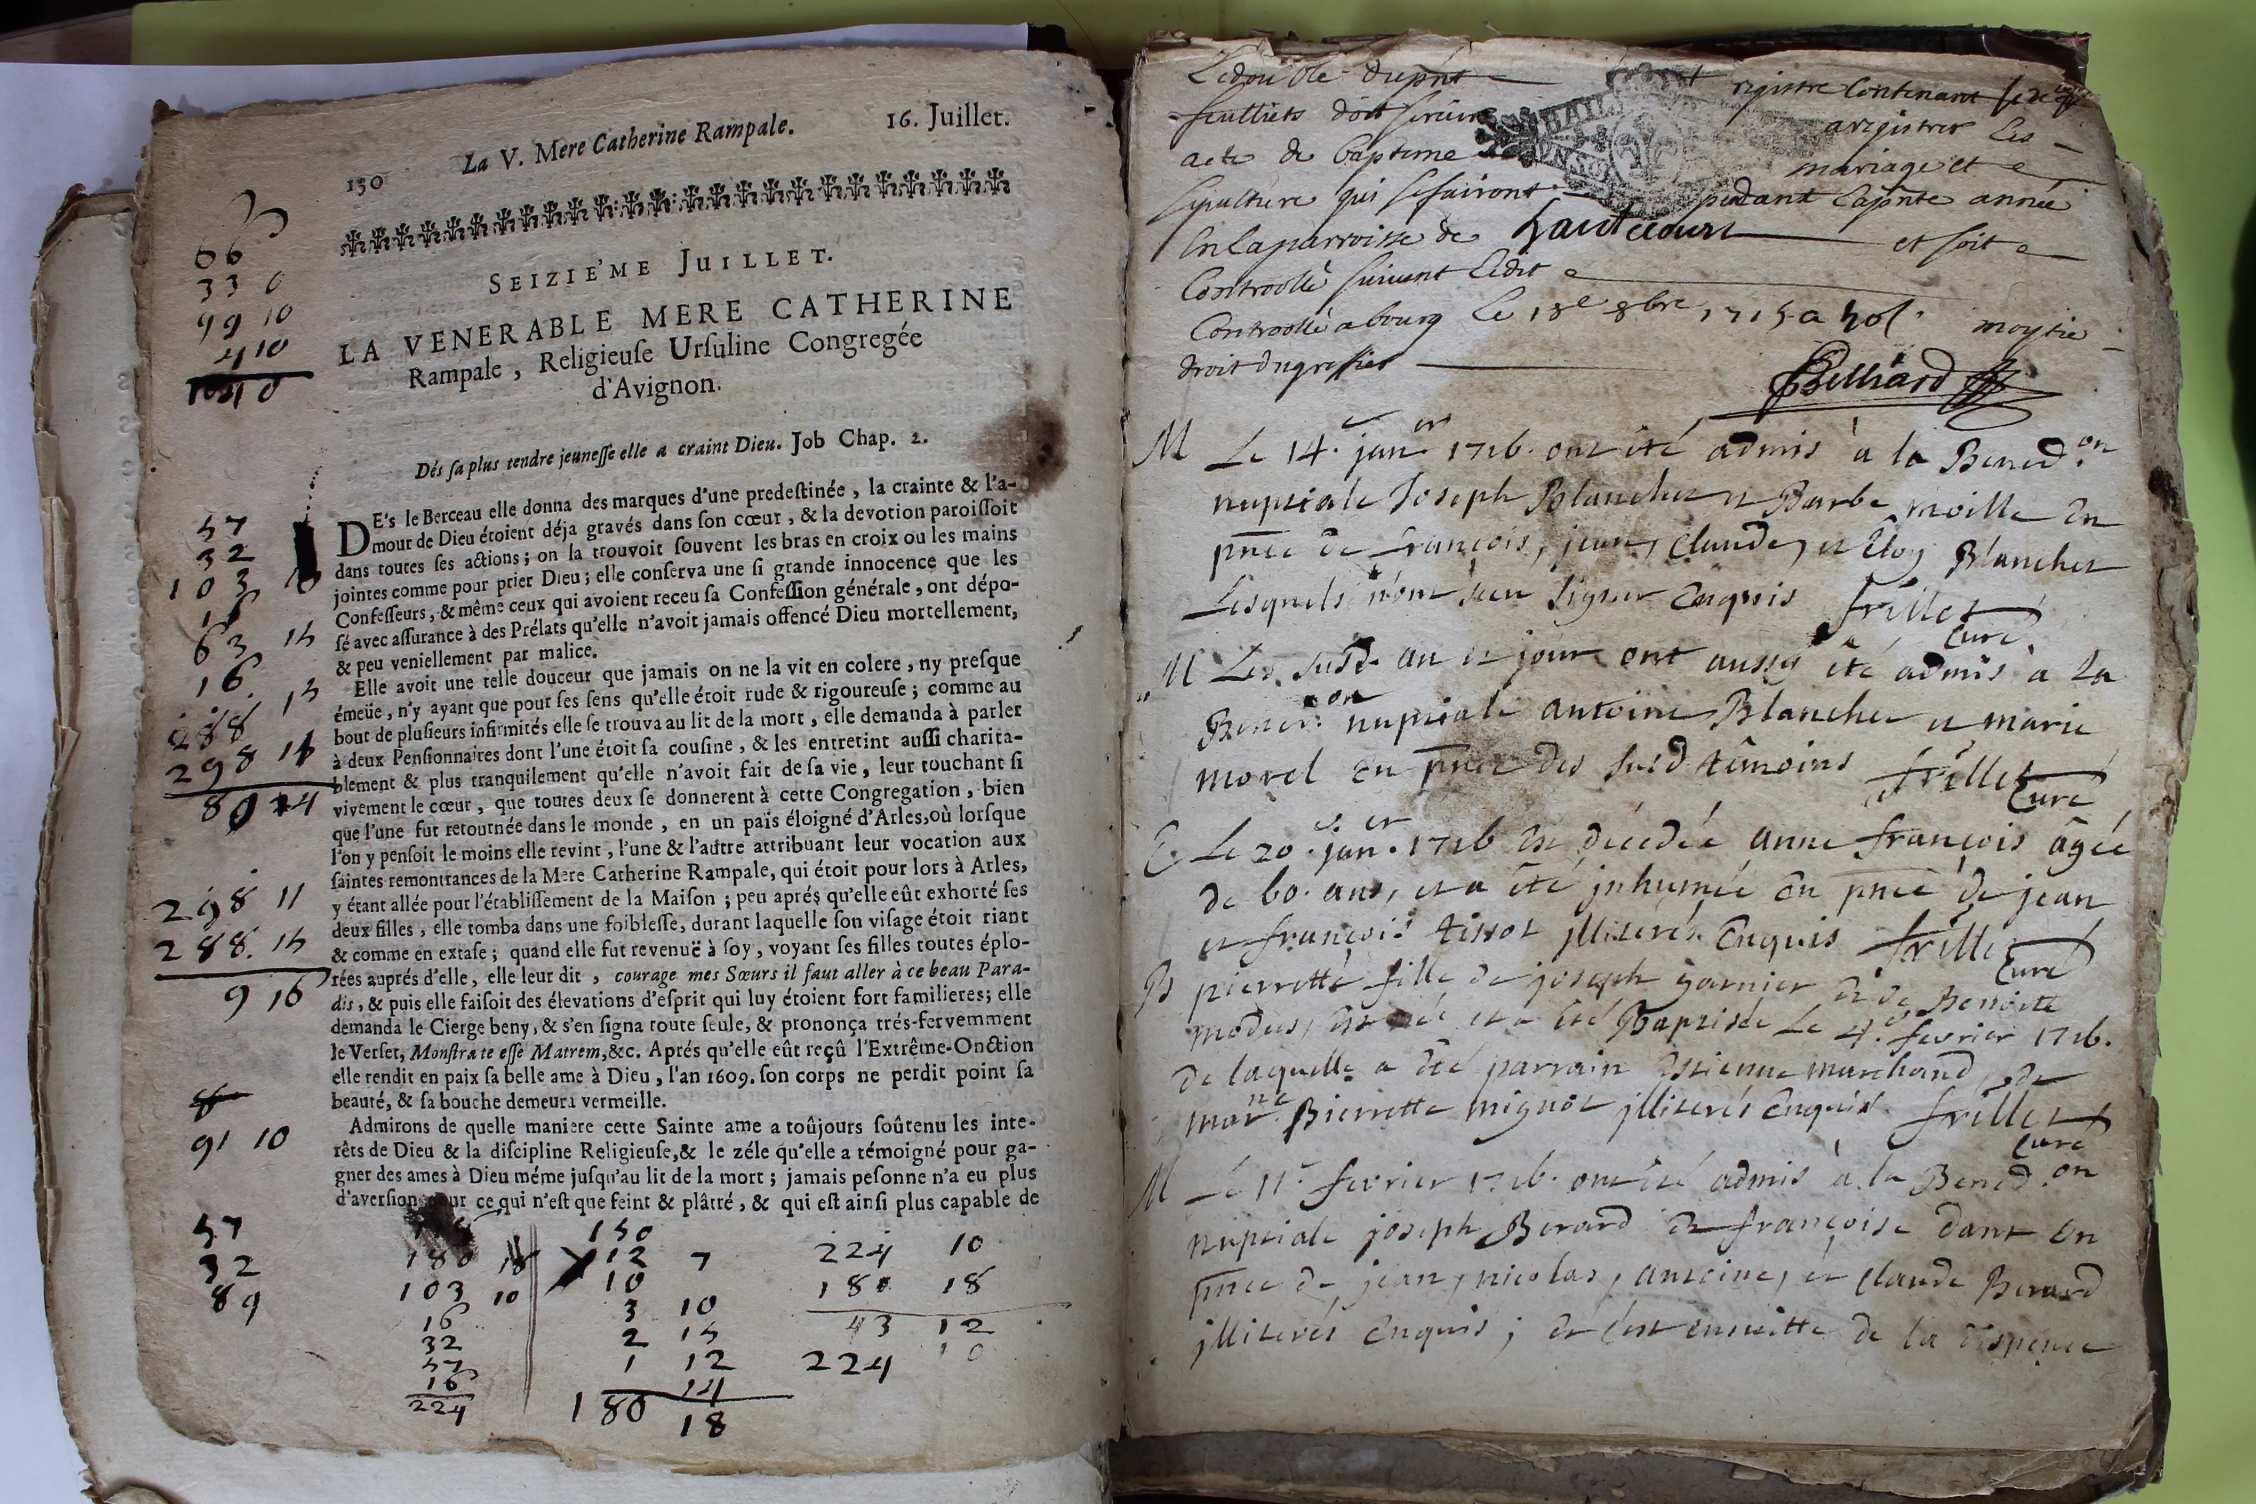 150
La V. Mere Catherine Rampale.
16. Juillet.
SEIZIE'ME JUILLET.
LA VENERABLE MERE CATHERINE
Rampale, Religieuſe Urſuline Congregée
d'Avignon.
Dés ſa plus tendre jeuneſſe elle a craint Dieu. Job Chap. 2.
DE's le Berceau elle donna des marques d'une predeſtinée, la crainte & l'a-
mour de Dieu étoient déja gravés dans ſon cœur, & la devotion paroiſſoit
dans toutes ſes actions; on la trouvoit ſouvent les bras en croix ou les mains
jointes comme pour prier Dieu; elle conſerva une ſi grande innocence que les
Confeſſeurs, & même ceux qui avoient receu ſa Confeſſion générale, ont dépo-
ſé avec aſſurance à des Prélats qu'elle n'avoit jamais offencé Dieu mortellement,
& peu veniellement par malice.
Elle avoit une telle douceur que jamais on ne la vit en colere, ny preſque
émeüe, n'y ayant que pour ſes ſens qu'elle étoit rude & rigoureuſe; comme au
bout de pluſieurs infirmités elle ſe trouva au lit de la mort, elle demanda à parler
à deux Penſionnaires dont l'une étoit ſa couſine, & les entretint auſſi charita-
blement & plus tranquilement qu'elle n'avoit fait de ſa vie, leur touchant ſi
vivement le cœur, que toutes deux ſe donnerent à cette Congregation, bien
que l'une fut retournée dans le monde, en un païs éloigné d'Arles, où lorſque
l'on y penſoit le moins elle revint, l'une & l'autre attribuant leur vocation aux
ſaintes remontrances de la Mere Catherine Rampale, qui étoit pour lors à Arles,
y étant allée pour l'établiſſement de la Maiſon; peu aprés qu'elle eût exhorté ſes
deux filles, elle tomba dans une foibleſſe, durant laquelle ſon viſage étoit riant
& comme en extaſe; quand elle fut revenuë à ſoy, voyant ſes filles toutes éplo-
rées auprés d'elle, elle leur dit, courage mes Sœurs il faut aller à ce beau Para-
dis, & puis elle faiſoit des élevations d'eſprit qui luy étoient fort familieres; elle
demanda le Cierge beny, & s'en ſigna toute ſeule, & prononça trés-fervemment
le Verſet, Monſtra te eſſe Matrem, &c. Aprés qu'elle eût reçû l'Extrême-Onction
elle rendit en paix ſa belle ame à Dieu, l'an 1609. ſon corps ne perdit point ſa
beauté, & ſa bouche demeura vermeille.
Admirons de quelle maniere cette Sainte ame a toûjours ſoûtenu les inte-
rêts de Dieu & la diſcipline Religieuſe, & le zéle qu'elle a témoigné pour ga-
gner des ames à Dieu méme juſqu'au lit de la mort; jamais peſonne n'a eu plus
d'averſion pour ce qui n'eſt que feint & plâtré, & qui eſt ainſi plus capable de
66
33 0
99 10
4 10
57
32
103 10
16
63 15
16.
288 15
298 11
298 11
288. 15
9 16
91 10
57
32
89
180 18
103 10
16
32
57
16
224
150
12 7
10
3 10
2 15
1 12
14
180 18
224 10
180 18
43 12
224 10
Ledouble duprnt registre Contenant
feulliets doit servir aregistrer Les
acte de bapteme mariage et
sepulture qui sefairont pendant Laprnte année
En Laparroisse de hautecourt et soit
Controollé suivant Ledit
Controollé a bourg Le 18e 8bre 1715 a moytie
droit dugreffier
Belliard
M Le 14. janer 1716. ont été admis à la Benedon
nuptiale Joseph Blanchet et Barbe moille En
pnce de françois, jean, Claude, et Eloy Blanchet
Lesquels n'ont sceu signer Enquis frillet
Curé
M Les susd. an et jour ont aussy été admis à La
Bened.on nuptiale antoine Blanchet et marie
morel En pnce des susd témoins frillet
Curé
E Le 20. janer. 1716 Est décédée anne françois âgée
de 60. ans, et a été jnhumée En pnce de jean
et françois tissot jlliterés Enquis frillet
Curé
B pierrette fille de joseph garnier Et de Benoitte
modus, Est née et a été Baptisée Le 4. fevrier 1716.
de laquelle a été parrain Estienne marchand, Et
marne Pierrette mignot jlliterés Enquis frillet
Curé
M Le 11. fevrier 1716. ont été admis à la Bened.on
nuptiale joseph Berard Et françoise dant En
pnce de jean, nicolas, antoine, et Claude Berard
jlliterés Enquis; Et c'est ensuitte de la dispence